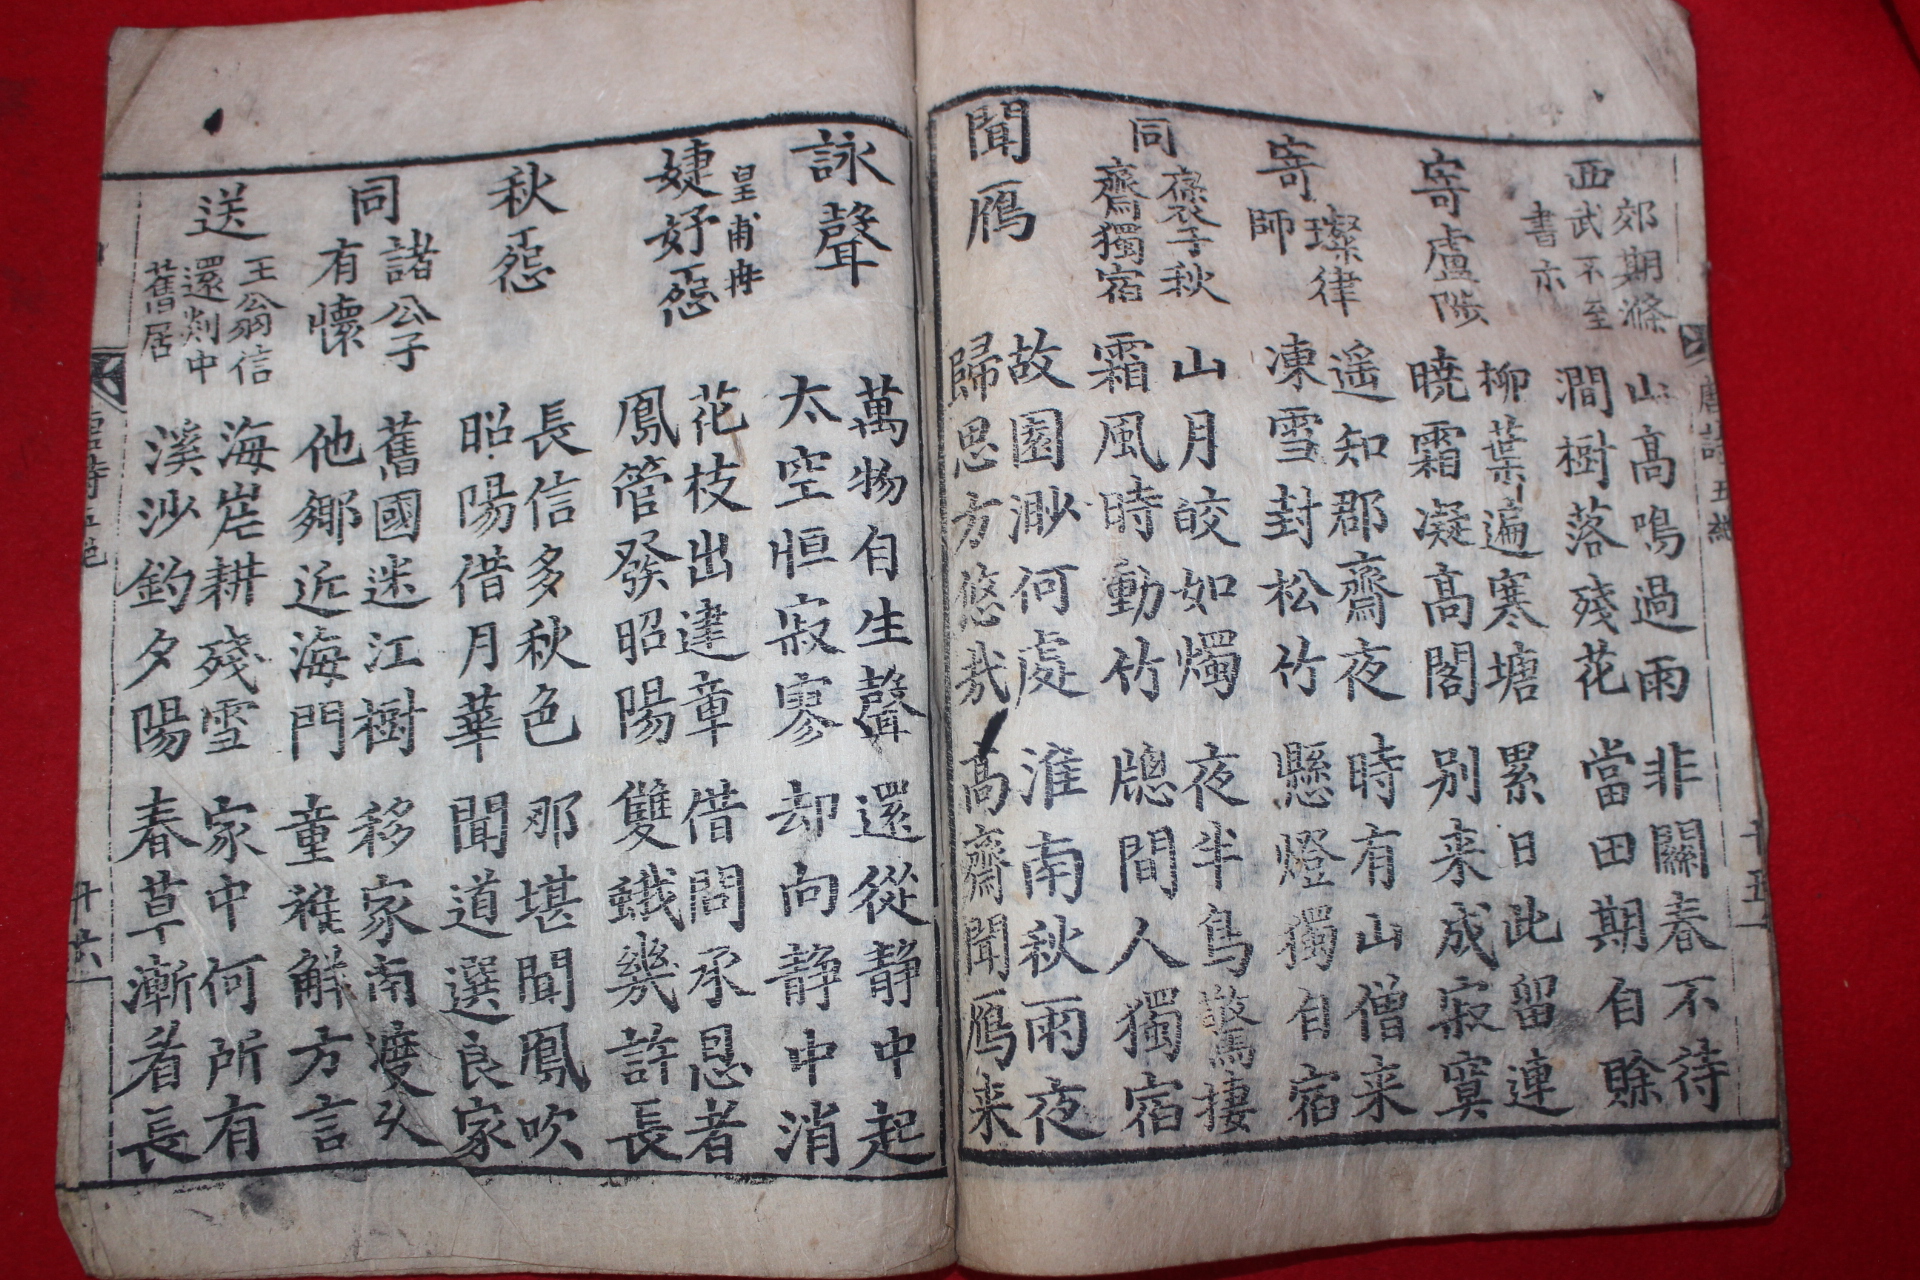 唐詩五絶
廿五
西
郊期滌
武不至
書示
山高鳴過雨 非關春不待
澗樹落殘花 當田期自賖
寄盧陟
柳葉遍寒塘 累日此留連
暁霜凝高閣 别来成寂寞
寄
璨律
師
遥知郡齋夜 時有山僧来
凍雪封松竹 懸燈獨自宿
同
褒子秋
齋獨宿
山月皎如燭 夜半鳥驚捿
霜風時動竹 牕間人獨宿
聞鴈
故園渺何處 淮南秋雨夜
歸思方悠㢤 高齋聞鴈来
詠聲
萬物自生聲 還從静中起
太空恒寂寥 却向静中消
皇甫冉
婕妤怨
花枝出建章 借問承恩者
鳳管發昭陽 雙蛾幾許長
秋怨
長信多秋色 那堪聞鳳吹
昭陽借月華 聞道選良家
同
諸公子
有懷
舊國迷江樹 移家南渡久
他鄉近海門 童稚解方言
送
王翁信
還剡中
舊居
海岸耕殘雪 家中何所有
溪沙釣夕陽 春草漸看長
唐詩五絶
廿六